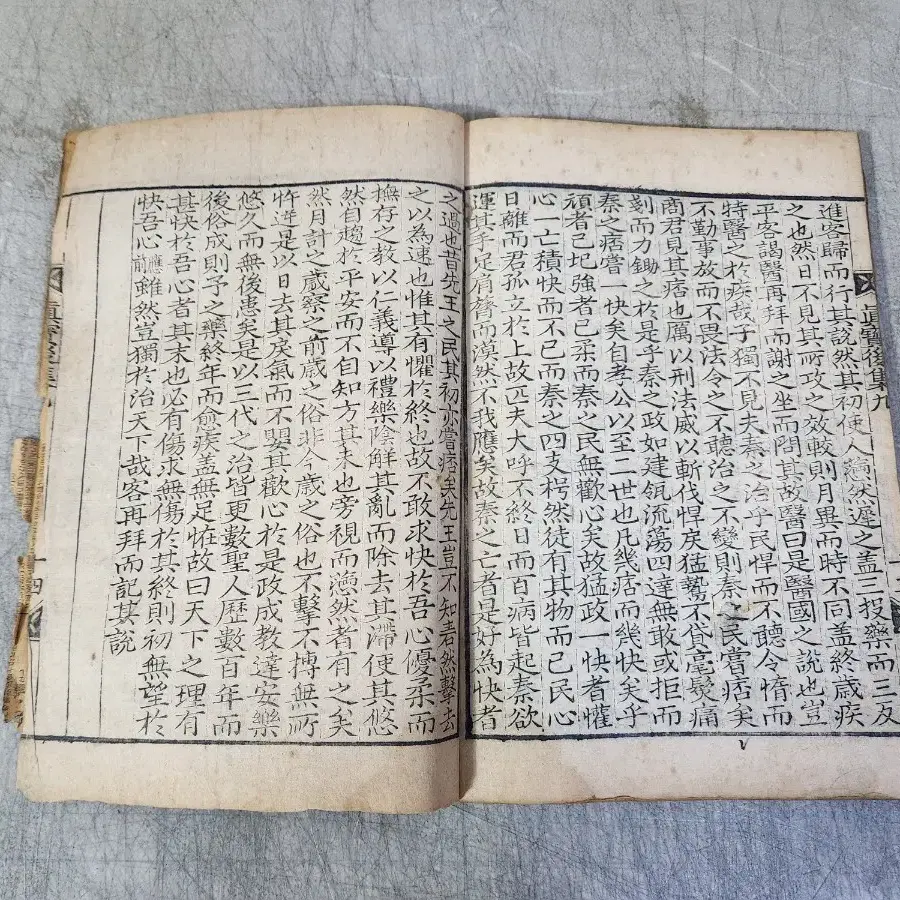 眞寶後集九
進客歸而行其說然其初使人懣然遲之盖三投藥而三反
之也然日不見其所攻之效較則月異而時不同盖終歲疾
平客謁醫再拜而謝之坐而問其故醫曰是醫國之說也豈
特醫之於疾哉子獨不見夫秦之治乎民悍而不聽令惰而
不勤事放而不畏法令之不聽治之不變則秦之民嘗痞矣
商君見其痞也厲以刑法威以斬伐悍戾猛鷙不貸毫髮痛
剗而力鋤之於是乎秦之政如建瓴流蕩四達無敢或拒而
秦之痞嘗一快矣自孝公以至二世也凡幾痞而幾快矣乎
頑者已圮強者已柔而秦之民無歡心矣故猛政一快者懽
心一亡積快而不已而秦之四支枵然徒有其物而已民心
日離而君孤立於上故匹夫大呼不終日而百病皆起秦欲
運其手足肩膂而漠然不我應矣故秦之亡者是好為快者
之過也昔先王之民其初亦嘗痞矣先王豈不知砉然擊去
之以為速也惟其有懼於終也故不敢求快於吾心優柔而
撫存之教以仁義導以禮樂陰解其亂而除去其滯使其悠
然自趨於平安而不自知方其未也旁視而懣然者有之矣
然月計之歲察之前歲之俗非今歲之俗也不擊不搏無所
忤逆是以日去其戾氣而不嬰其歡心於是政成教達安樂
悠久而無後患矣是以三代之治皆更數聖人歷數百年而
後俗成則予之藥終年而愈疾盖無足恠故曰天下之理有
其快於吾心者其末也必有傷求無傷於其終則初無望於
快吾心應前雖然豈獨於治天下哉客再拜而記其說
眞寶後集
四